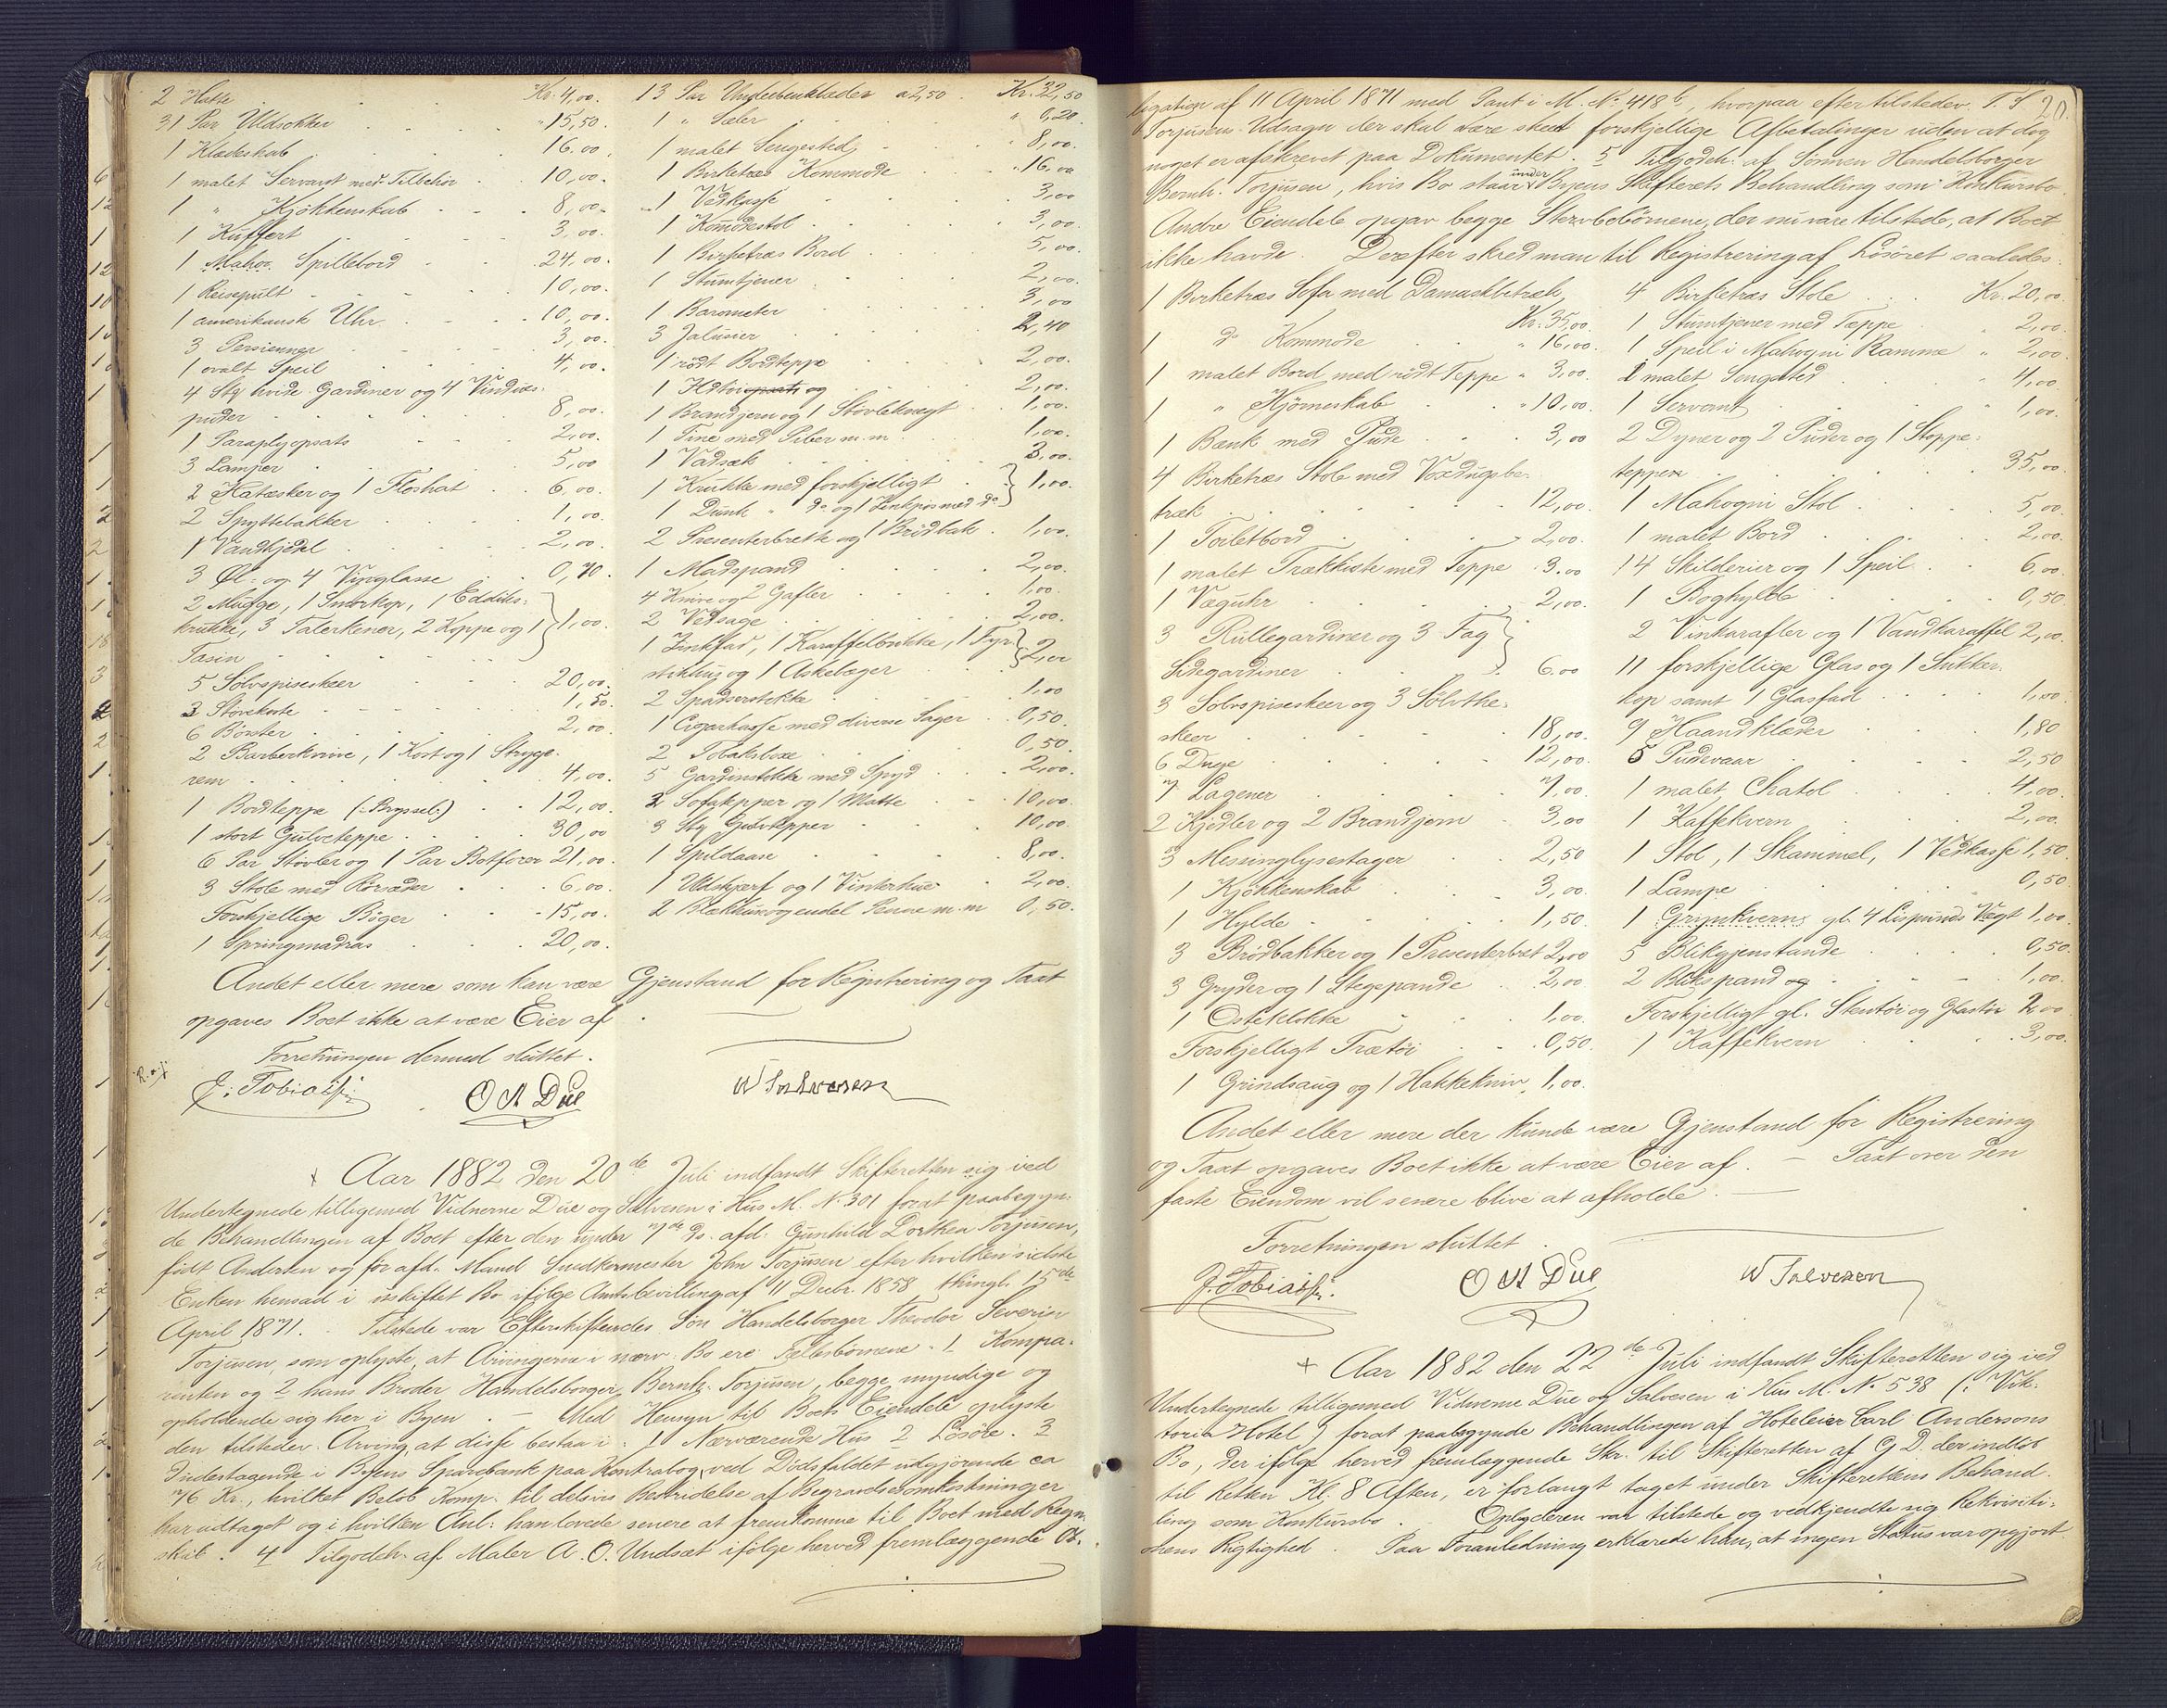 2 Hatte . . . Kr. 4,00.
31 Par Uldsokker . . . " 15,50.
1 Klædeskab . . . 16,00.
1 malet Servant med Tilbehör . . 10,00.
1 " Kjökkenskab . . . 8,00.
1 Kuffert . . . 3,00.
1 Mahog. Spillebord . . 24,00.
1 Reisepült . . . 10,00.
1 amerikansk Uhr . . . 10,00.
3 Persienner . . . 3,00.
1 ovalt Speil . . . 4,00.
4 Stkr hvide Gardiner og 4 Vindues-
puder . . . 8,00.
1 Paraplyopsats . . . 2,00.
3 Lamper . . . 5,00
2 Hatæsker og 1 Floshat . . 6,00.
2 Spyttebakker . . . 1,00.
1 Vandkjedel . . . 2,00.
3 Øl- og 4 Vinglasse . . 0,70.
2 Mugge, 1 Smörkop, 1 Eddiks-
krukke, 3 Talerkener, 2 Koppe og 1 } 1,00.
Tasin
5 Sölvspiseskeer . . . 20,00.
3 Stövekoste . . . 1,50.
6 Börster . . . 2,00.
2 Barberknive, 1 Kost og 1 Stryge-
rem . . . 4,00.
1 Bordteppe (: Bryssel:) . . 12,00.
1 stort Gulvteppe . . . 30,00
6 Par Stövler og 1 Par Botforer 21,00.
3 Stole med Rörsæder . . 6,00.
Forskjellige Böger . . - 15,00.
1 Springmadras . . . 20,00.
13 Par Underbenklæder a 2,50 . Kr. 32,50
1 " Sæler . . . " 0,20.
1 malet Sengested . . . 8,00.
1 Birketræs Kommode . . . " 16,00
1 Vedkasse . . . 3,00
1 Komodestol . . . 3,00.
1 Birketræs Bord . . . 5,00.
1 Stumtjener . . . 2,00.
1 Barometer . . . 3,00
3 Jalusier . . . 2,40
1 rödt Bordteppe . . . 2,00.
2,00.
1 Brandjern og 1 Stövleknegt . . 1,00.
1 Tine med Piber m.m. . . 1,00.
1 Vadsæk . . . 3,00.
1 Krukke med forskjelligt . . } 1,00.
1 Dunk " do og 1 med do
2 Presenterbrette og 1 Brödbak . 1,00.
1 Madspand . . . 2,00.
4 Knive og 2 Gafler . . . 1,00.
2 Vedsage . . . 2,00.
1 Zinkfad, 1 Karaffelbrikke, 1 Fyr-
stikhus og 1 Askebæger } 2,00
2 Spadserstokke . . . 1,00
1 Cigarkasse med diverse Sager . . 0,50.
2 . . . 0,50.
5 Gardinstokke med Spyd . . 2,00.
2 Sofatepper og 1 Matte . . 10,00.
3 Stkr Gulvtepper . . . 10,00.
1 Spildaase . . . 8,00.
1 Uldskjerf og 1 Vinterhue . 2,00.
2 Blækhuse og endel Penne m.m 0,50.
Andet eller mere som kan være Gjenstand for Registrering og Taxt
opgaves Boet ikke at være Eier af .
Forretningen dermed sluttet.
J. Tobiassen O A Due W Salvesen
+ Aar 1882 den 20de Juli indfandt Skifteretten sig ved
Undertegnede tilligemed Vidnerne Due og Salvesen i Hus M. No 301 forat paabegyn-
de Behandlingen af Boet efter den under 7de ds. afd. Gunhild Dorthea Torjusen,
födt Andersen og för afd. Mand Snedkermester John Torjusen efter hvilken sidste
Enken hensad i uskiftet Bo ifölge Amtsbevilling af 11 Decbr. 1858 thingl. 15de
April 1871. - Tilstede var Efterskiftendes Sön Handelsborger Theodor Severin
Torjusen, som oplyste, at Arvingerne i nærv. Bo ere Fællesbörnene: 1 Kompa-
renten og 2 hans Broder Handelsborger Bernh. Torjusen, begge myndige og
opholdende sig her i Byen . - Med Hensyn til Boets Eiendele oplyste
den tilstedev. Arving, at disse bestaa i: 1 Nærværende Hus 2 Lösöre. 3
Indestagende i Byens Sparebank paa Kontrabog, ved Dödsfaldet udgjörende ca
76 Kr., hvilket Belöb Komp. til delvis Bestridelse af Begravelseomkostninger
har udtaget og i hvilken Anl: han lovede senere at fremkomme til Boet med Regn-
skab. 4 Tilgodeh. af Maler A. O. Undsæt ifölge herved fremlæggende Ob-
20.
ligation af 11 April 1871 med Pant i M. No 418b, hvorpaa efter tilstedev. T. S.
Torjusens Udsagn der skal være skeet forskjellige Afbetalinger uden at dog
noget er afskrevet paa Dokumentet. 5 Tilgodeh: af Sönnen Handelsborger
Bernh. Torjusen, hvis Bo staar under Byens Skifterets Behandling som Konkursbo.
Andre Eiendele opgav begge Stervbobörnene, der nu vare tilstede, at Boet
ikke havde. Derefter skred man til Registrering af Lösöret saaledes:
1 Birketræs Sofa med Damaskbetræk,
Kr. 35,00.
1 do Kommode . . " 16,00.
1 malet Bord med rödt Teppe " 3,00.
1 " Hjörneskab . . " 10,00.
1 Bænk med Pude . . . 3,00
4 Birketræs Stole med Voxdugsbe-
træk . . . 12,00.
1 Toiletbord . . . 2,00.
1 malet Trækkiste med Teppe . 3.00
1 Væguhr . . . 2,00.
3 Rullegardiner og 3 Fag }
Sidegardiner . . . 6.00
3 Sölvspiseskeer og 3 Sölvthe-
skeer . . . 18,00.
6 Duge . . . 12,00.
7 Lagener . . . 7,00.
2 Kjedler og 2 Brandjern . 3,00
3 Messinglysestager . . 2,50
1 Kjökkenskab . . . 3,00.
1 Hylde . . . 1,50.
3 Brödbakker og 1 Presenterbret 2,00
3 Gryder og 1 Stegepande . . 2,00
1 Osteklokke . . . 1,00.
Forskjelligt Trætöi . . . 0,50.
1 Grindsaug og 1 Hakkekniv 1,00.
4 Birketræs Stole . . . Kr. 20,00.
1 Stumtjener med Teppe " 2,00.
1 Speil i Mahogni Ramme " 2,00.
2 malet Sengested . . " 4,00.
1 Servant . . . " 1,00.
2 Dyner og 2 Puder og 1 Stoppe-
teppe . . . 35,00.
1 Mahogni Stol . . . 5,00.
1 malet Bord . . . 2,00.
14 Skilderier og 1 Speil . . 6,00.
1 Boghylde . . . 0,50
2 Vinkarafler og 1 Vandkaraffel 2,00.
11 forskjellige Glas og 1 Sukker-
kop samt 1 Glasfad . . . 1,00.
9 Haandklæder . . . 1,80
5 Pudevaar . . . 2,50
1 malet Chatol . . . 4,00.
1 Kaffekvern . . . 2,00.
1 Stol, 1 Skammel, 1 Vedkasse 1,50.
1 Lampe . . . 0,50
1 Grynkvern, gl. 4 Lispunds Vægt 1,00.
5 Blikgjenstande . . . 0,50.
2 Blikspand . . . 1,00.
Forskjelligt gl. Stentöi og Glastöi 2,00
1 Kaffekvern . . . 3,00.
Andet eller mere der kunde være Gjenstand for Registrering
og Taxt opgaves Boet ikke at være Eier af. - Taxt over den
faste Eiendom vil senere blive at afholde . -
Forretningen sluttet.
J. Tobiassen. O A Due W Salvesen
+ Aar 1882 den 22de Juli indfandt Skifteretten sig ved
Undertegnede tilligemed Vidnerne Due og Salvesen i Hus M. No 538 (: Vik-
toria Hotel :) forat paabegynde Behandlingen af Hoteleier Carl Andersons
Bo, der ifölge herved fremlæggende Skr. til Skifteretten af G. D. der indlöb
til Retten Kl. 8 Aften, er forlangt taget under Skifterettens Behand-
ling som Konkursbo. Opbyderen var tilstede og vedkjendte sig Rekvisiti-
onens Rigtighed . Paa Foranledning erklærede han, at ingen Status var opgjort.